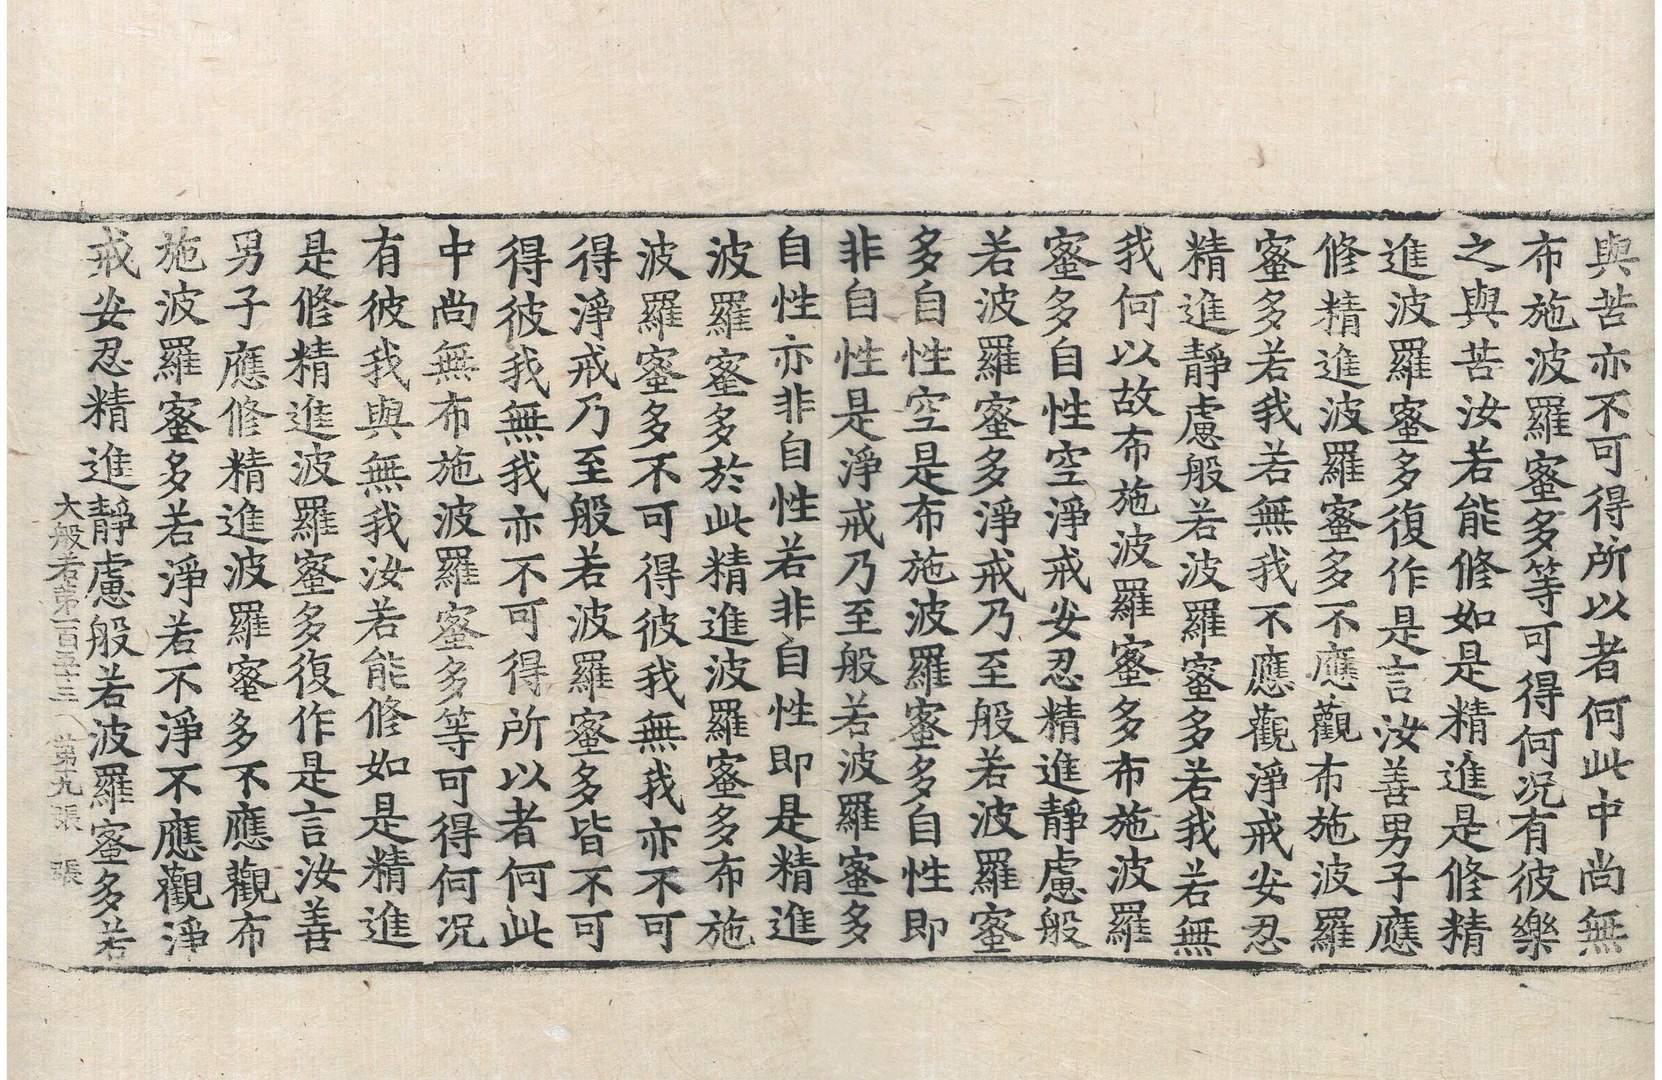 與苦亦不可得所以者何此中尚無
布施波羅蜜多等可得何况有彼樂
之與苦汝若能修如是精進是修精
進波羅蜜多復作是言汝善男子應
修精進波羅蜜多不應觀布施波羅
蜜多若我若無我不應觀淨戒安忍
精進靜慮般若波羅蜜多若我若無
我何以故布施波羅蜜多布施波羅
蜜多自性空淨戒安忍精進靜慮般
若波羅蜜多淨戒乃至般若波羅蜜
多自性空是布施波羅蜜多自性即
非自性是淨戒乃至般若波羅蜜多
自性亦非自性若非自性即是精進
波羅蜜多於此精進波羅蜜多布施
波羅蜜多不可得彼我無我亦不可
得淨戒乃至般若波羅蜜多皆不可
得彼我無我亦不可得所以者何此
中尚無布施波羅蜜多等可得何况
有彼我與無我汝若能修如是精進
是修精進波羅蜜多復作是言汝善
男子應修精進波羅蜜多不應觀布
施波羅蜜多若淨若不淨不應觀淨
戒安忍精進靜慮般若波羅蜜多若
大般若第一百五十三 第九張 張